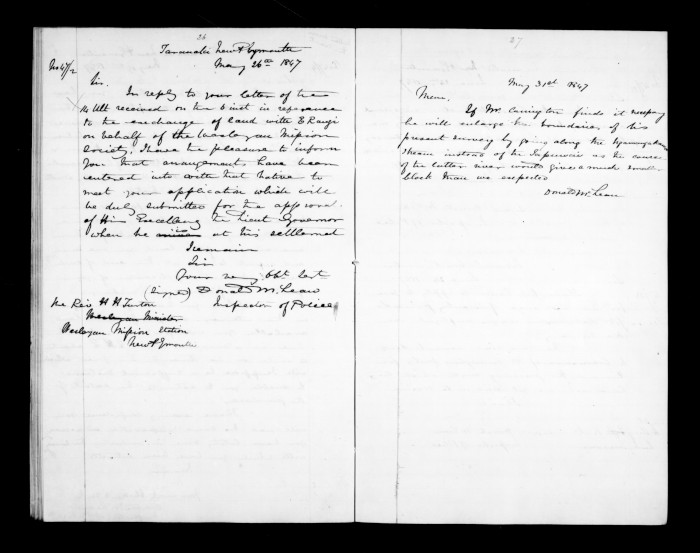 26
Taranaki New Plymouth
May 26th 1847
No 47/2
Sir.
In reply to your letter of the
14 Ult received on the 6 inst in reference
to the exchange of land with E Rangi
on behalf of the Wesleyan Mission
Society, I have the pleasure to inform
you that arrangements have been
entered into with that Native to
meet your application which will
be duly submitted for the approval
of His Excellency the Lieut Governor
when he at this settlement
I remain
Sir
Your very Obt Sert
(Signed) Donald McLean
Inspector of Police
The Rev H H Turton
Wesleyan Minister
Wesleyan Mission Station
New Plymouth
27
May 31st 1847
Memo.
If Mr. Carrington finds it necessary
he will enlarge the boundaries of his
present survey by going along the
stream instead of the as the course
of the latter river would give a much smaller
block than we expected
Donald McLean